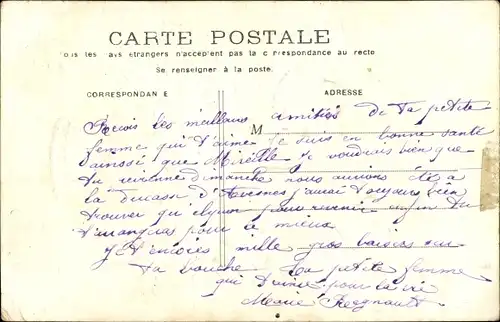 CARTE POSTALE
ous les ays étrangers n'acceptent pas la c rrespondance au recto
Se renseigner à la poste.
CORRESPONDAN E
ADRESSE
Recois les meilleurs amitiés de ta petite
M
femme qui t'aime je suis en bonne santé
que Mireille je voudrais bien que
tu vienne dimanche nous aurions été à
la ducasse d'Avesnes j'aurai toujours bien
trouver qu elque pour revenir enfin tu
pour le mieux
Je t'envoies mille gros baisers sur
ta bouche ta petite femme
qui t'aime pour la vie
Marie Regnault